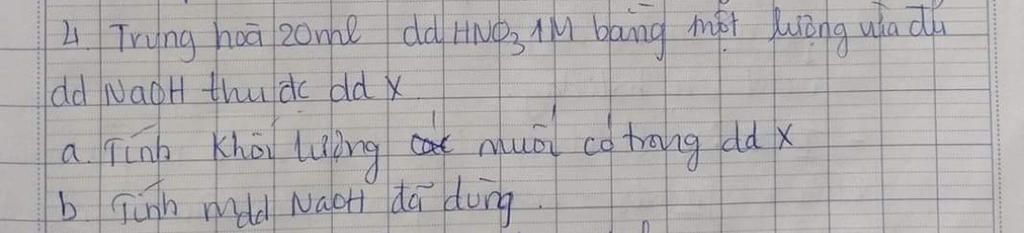 4. Trung hoà 20ml dd HNO3 1M bằng một lượng vừa đủ
dd NaOH thu đc dd X
a. Tính khối lượng các muối có trong dd X
b. Tính mdd NaOH đã dùng.